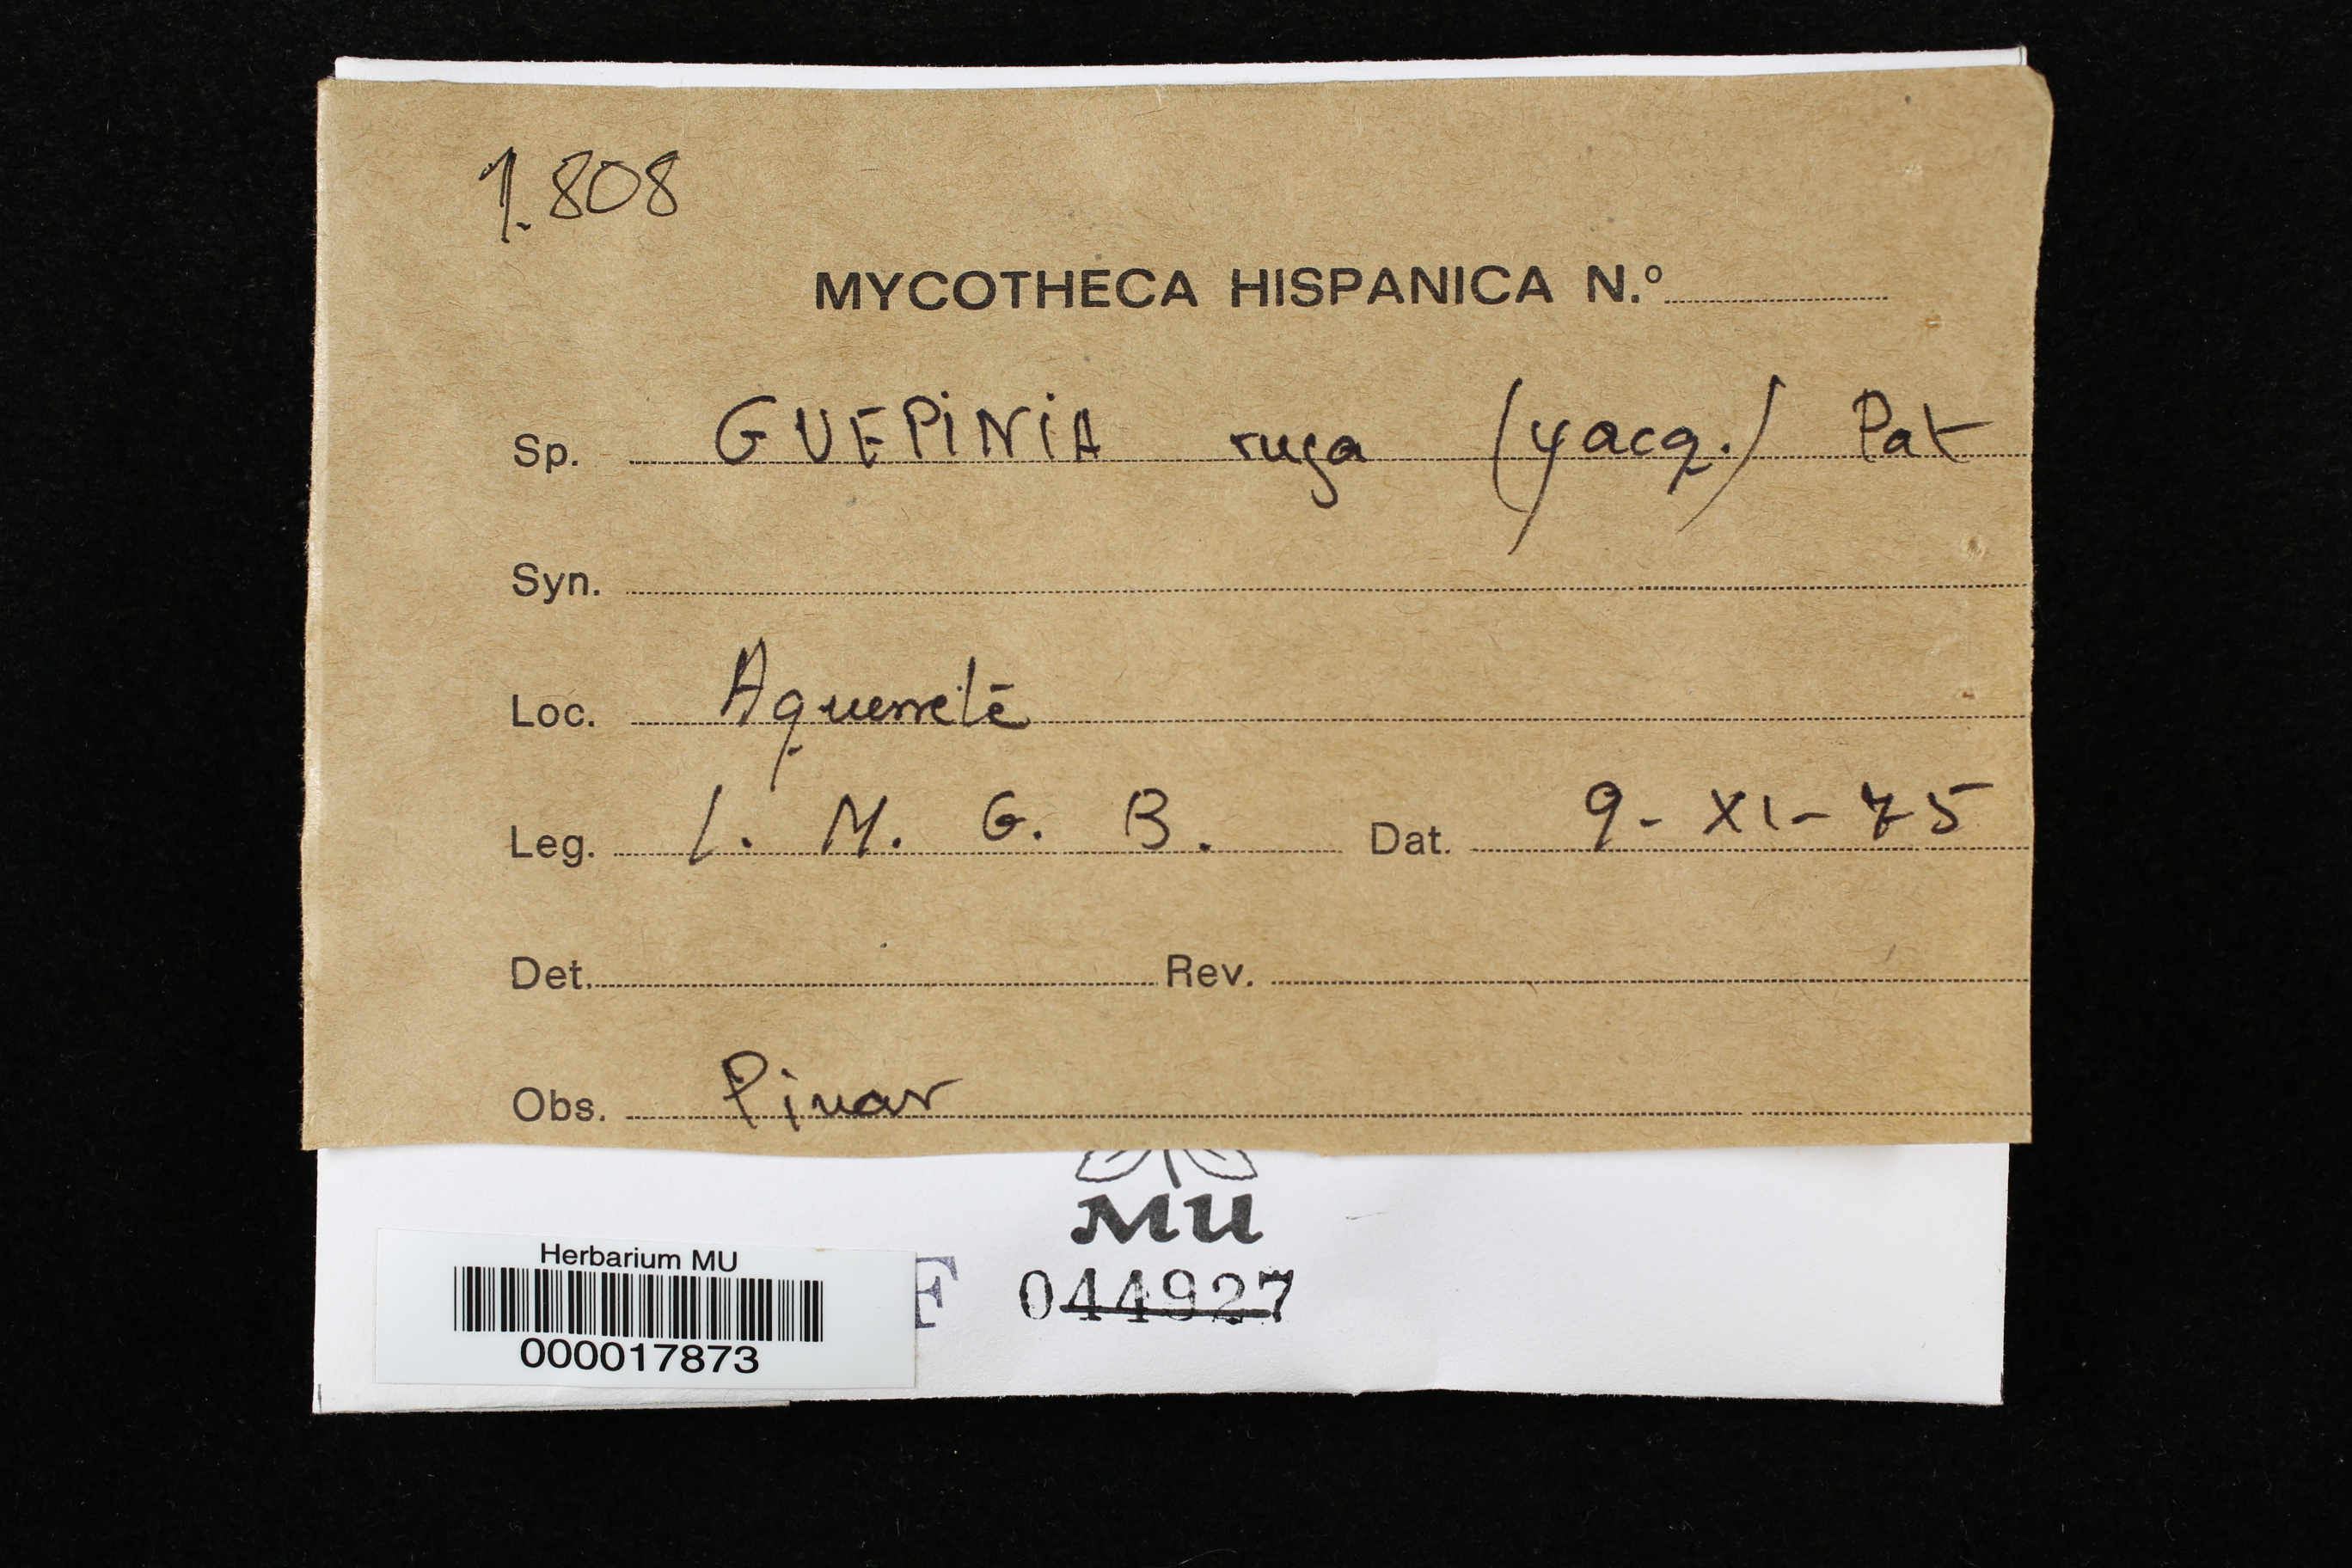 1.808
MYCOTHECA HISPANICA N.º
Sp. GUEPINIA ruga (Yacq.) Pat
Syn.
Loc. Aquerreté
Leg. L. M. G. B. Dat. 9-XI-75
Det. Rev.
Obs. Pinar
MU
Herbarium MU
F 044927
000017873